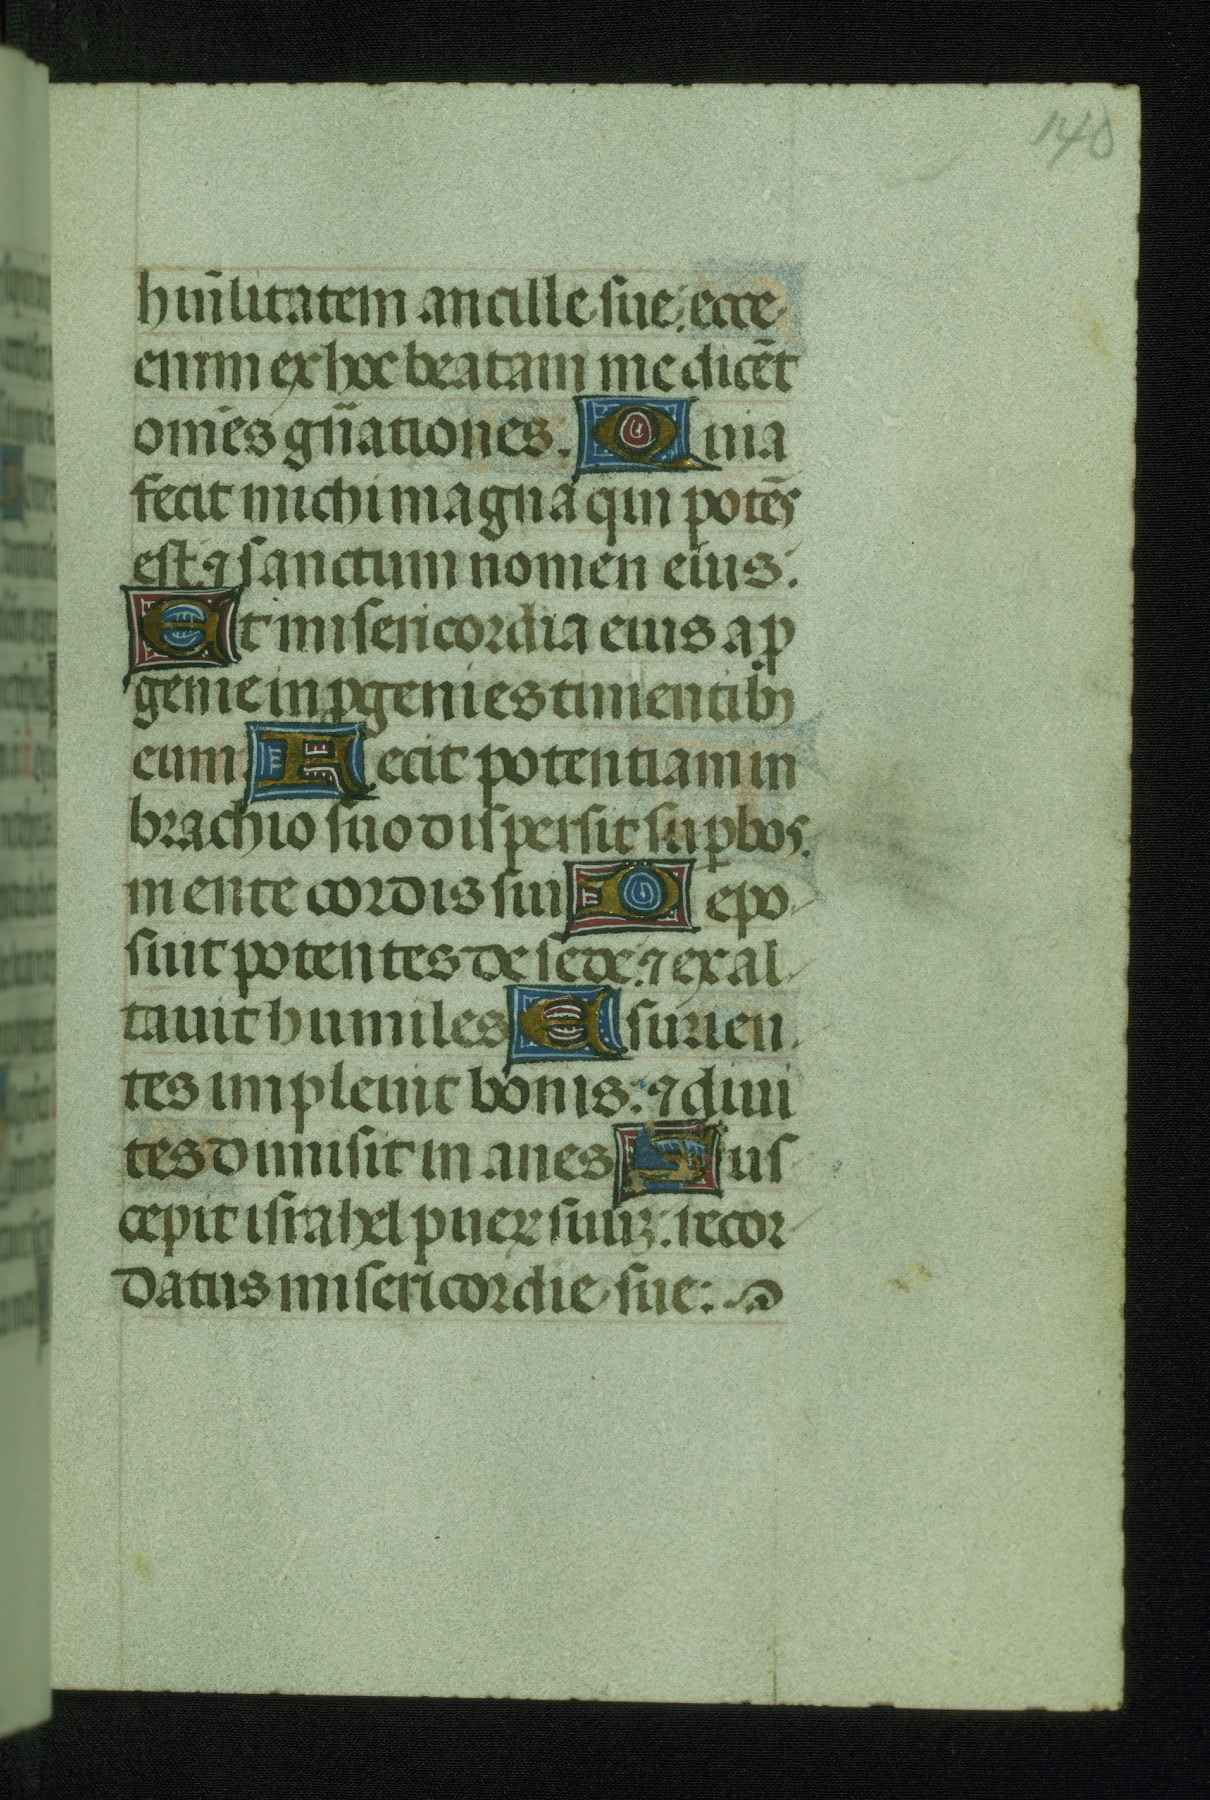 140
hum̄litatem ancille sue: ecce
enim ex hoc beatam me dicēt
om̄es gn̄ationes. Quia
fecit michi magna qui potēs
est ⁊ sanctum nomen eius:
Et misericordia eius a ꝓ
genie in ꝓgenies timentibꝫ
eum Fecit potentiam in
brachio suo dispersit suꝑbos
mente cordis sui Depo
suit potentes de sede: ⁊ exal
tauit humiles Esurien
tes impleuit bonis: ⁊ diui
tes dimisit in anes Sus
cepit israhel puer̄ suuꝫ: recor
datus misericordie sue: